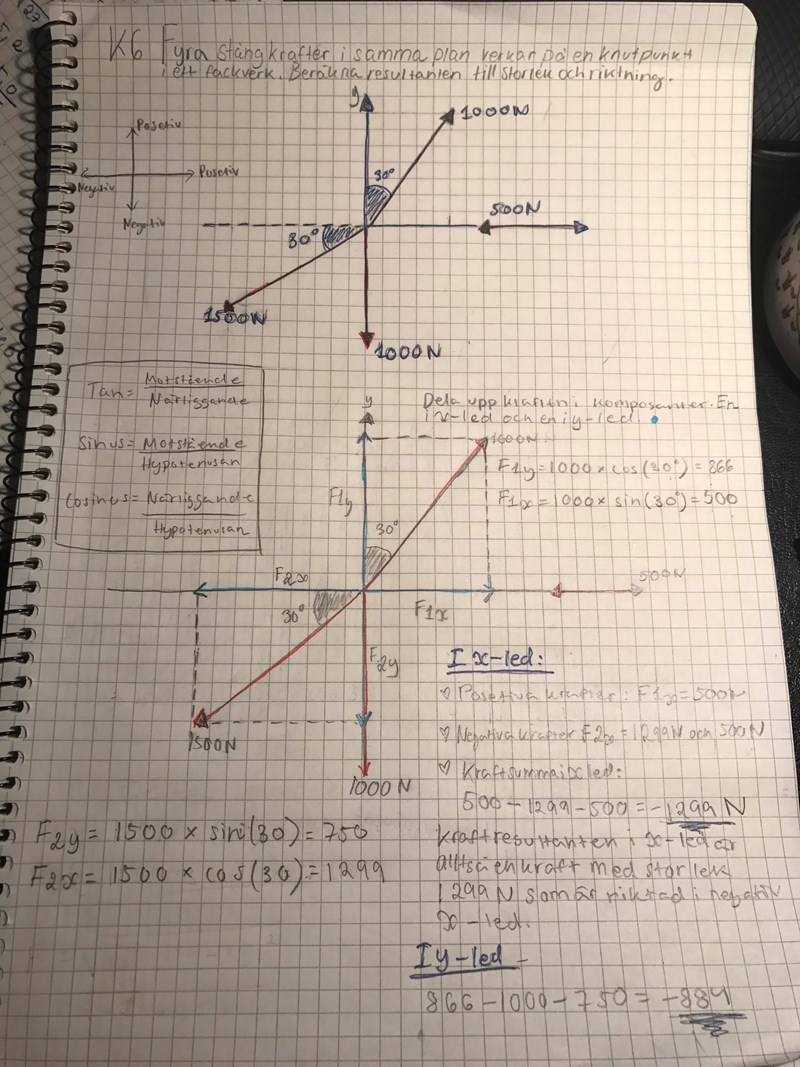 K6 Fyra stångkrafter i samma plan verkar på en knutpunkt
i ett fackverk. Beräkna resultanten till storlek och riktning.
y
1000N
Posetiv
30°
Posetiv
Negativ
500N
Negativ
30°
1500N
1000N
Tan = Motstående
Närliggande
Sinus = Motstående
Hypotenusan
Cosinus = Närliggande
Hypotenusan
y
Dela upp kraften i komposanter. En
i x-led och en i y-led.
1000N
F1y = 1000 × cos(30°) = 866
F1x = 1000 × sin(30°) = 500
F1y
30°
F2x
500N
30°
F1x
F2y
I x-led:
♡ Posetiva krafter: F1x = 500N
1500N
♡ Negativa krafter F2x = 1299N och 500N
♡ Kraftsumma i x led:
1000 N
500 - 1299 - 500 = -1299 N
F2y = 1500 × sin(30) = 750
F2x = 1500 × cos(30) = 1299
Kraftresultanten i x-led är
alltså en kraft med storlek
1299 N som är riktad i negativ
x-led.
I y-led
866 - 1000 - 750 = -884